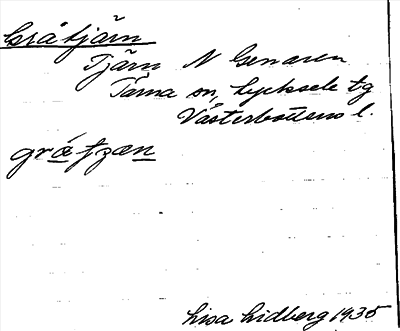 Gråtjärn
Tjärn N Genaren
Tärna sn, Lycksele tg
Västerbottens l.
gråtzæn
Lisa Lidberg 1935